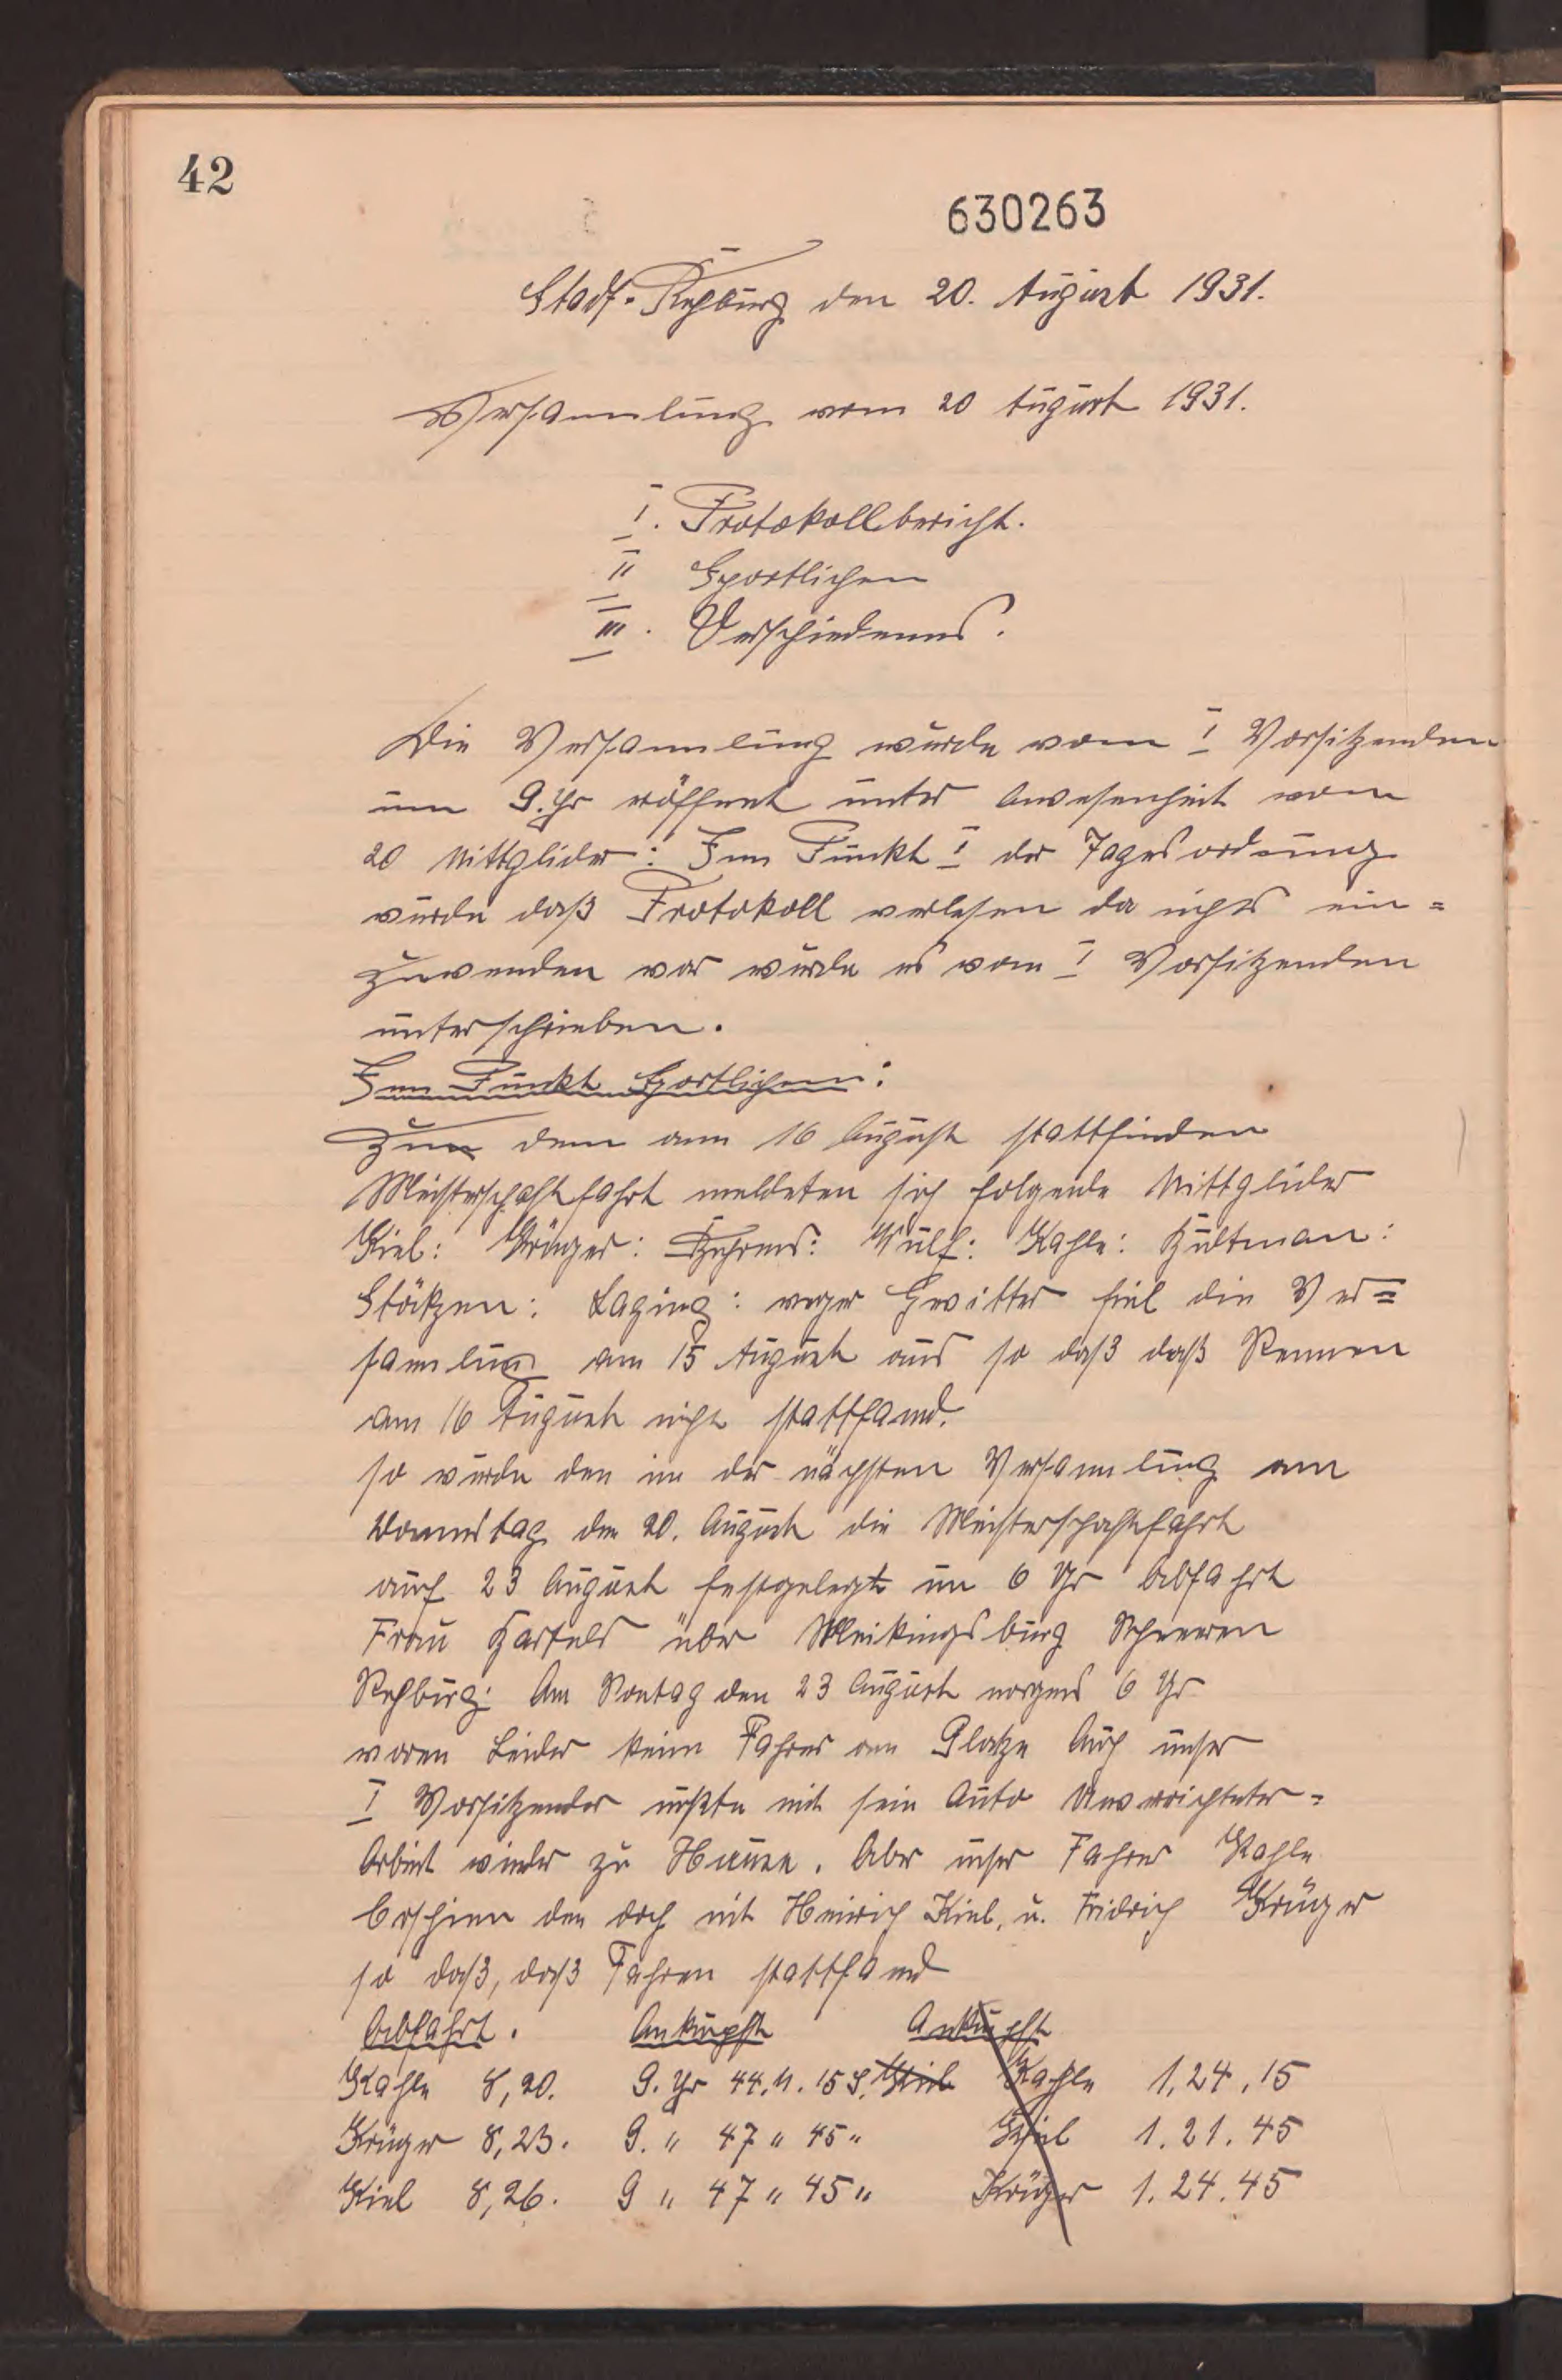 42
630263
Stadt-Rehburg den 20. August 1931.
Versammlung vom 20 August 1931.
I. Protokollbericht.
II Sportlichen
III. Verschiedenes.
Die Versammlung wurde vom I Vorsitzenden
um 9. Uhr eröffnet unter Anwesenheit von
20 Mittglider: Zum Punkt I der Tagesordnung
wurde daß Protokoll verlesen da nichts ein=
zuwenden war wurde es vom I Vorsitzenden
unterschrieben.
Zum Punkt Sportlichen:
Zum dem am 16 August stattfinden
Meisterschaftfahrt meldeten sich folgende Mittglider
Kiel: Krüger: Behrens: Wulf: Kahle: Hültman:
Stökzen: Laging: wegen Gewitter fiel die Ver=
samlung am 15 August aus so daß daß Rennen
am 16 August nicht stattfand.
so wurde den in der nächsten Versammlung am
Donnerstag den 20. August die Meisterschaftfahrt
auf 23 August festgelegt um 6 Uhr Abfahrt
Frau über burg
Rehburg: Am Sontag den 23 August morgens 6 Uhr
waren Leider keine Fahrer am Platze Auch unser
I Vorsitzender mußte mit sein Auto Unverrichteter=
Arbeit wieder zu Hause. Aber unser Fahrer Kahle
erschien den doch mit Heinrich Kiel, u. Fridrich Krüger
so daß, daß Fahren stattfand
Abfahrt. Ankunpft Ankunpft
Kahle 8,20. 9. Uhr 44. M. 15 S. Kiel Kahle 1,24,15
Krüger 8,23. 9. " 47 " 45 " Kiel 1.21.45
Kiel 8,26. 9 " 47 " 45 " Krüger 1.24.45